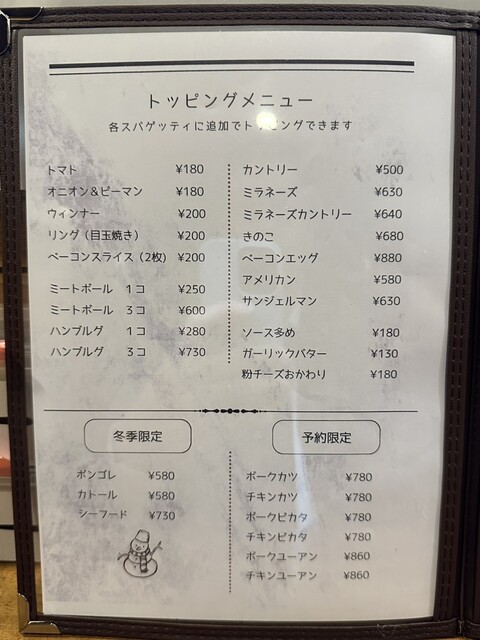 トッピングメニュー
各スパゲッティに追加でトッピングできます
トマト ¥180
オニオン&ピーマン ¥180
ウィンナー ¥200
リング(目玉焼き) ¥200
ベーコンスライス(2枚) ¥200
ミートボール 1コ ¥250
ミートボール 3コ ¥600
ハンブルグ 1コ ¥280
ハンブルグ 3コ ¥730
カントリー ¥500
ミラネーズ ¥630
ミラネーズカントリー ¥640
きのこ ¥680
ベーコンエッグ ¥880
アメリカン ¥580
サンジェルマン ¥630
ソース多め ¥180
ガーリックバター ¥130
粉チーズおかわり ¥180
冬季限定
ボンゴレ ¥580
カトール ¥580
シーフード ¥730
予約限定
ポークカツ ¥780
チキンカツ ¥780
ポークピカタ ¥780
チキンピカタ ¥780
ポークユーアン ¥860
チキンユーアン ¥860